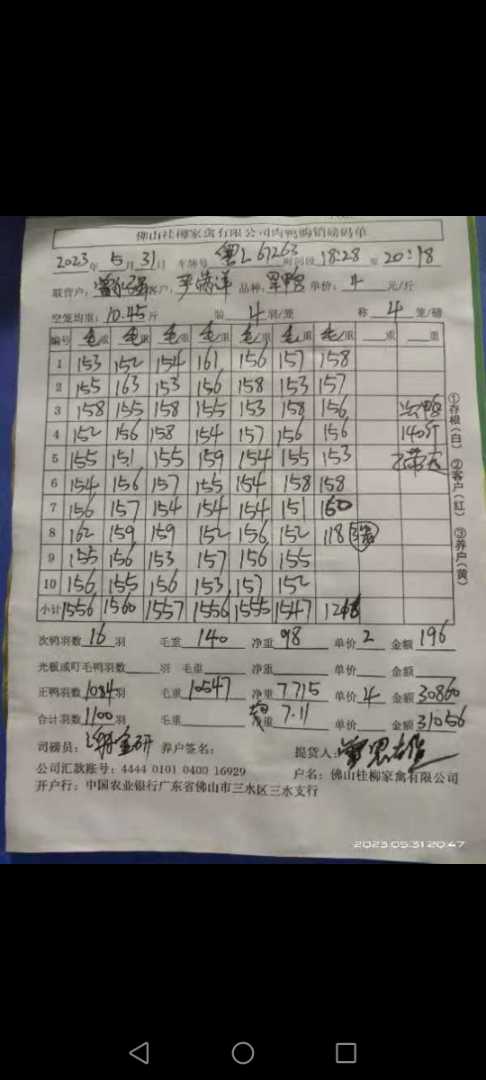 佛山桂柳家禽有限公司肉鸭购销磅码单
2023年 5月 31日 车牌号 粤L67263 时间段 18:28 至 20:18
联营户: 客户: 品种: 单价: 4 元/斤
空笼均重: 10.45 斤 装 4 羽/笼 称 4 笼/磅
编号 毛重 毛重 毛重 毛重 毛重 毛重 毛重 重 重
1 153 152 154 161 156 157 158
2 155 163 153 156 158 153 157
3 158 155 158 155 153 158 156
4 152 156 158 154 157 156 156 140斤
5 155 151 155 159 154 155 153
6 154 156 157 155 154 158 158
7 156 157 154 154 154 151 160
8 162 159 159 152 156 152 118
9 155 156 153 157 156 155
10 156 155 156 153 157 152
小计 1556 1560 1557 1556 1555 1547
次鸭羽数 16 羽 毛重 140 净重 98 单价 2 金额 196
光板或盯毛鸭羽数 羽 毛重 净重 单价 金额
正鸭羽数 1084 羽 毛重 10547 净重 7715 单价 4 金额 30860
合计羽数 1100 羽 毛重 重 7.11 单价 金额 31056
司磅员: 养户签名: 提货人:
公司汇款账号: 4444 0101 0400 16929 户名: 佛山桂柳家禽有限公司
开户行: 中国农业银行广东省佛山市三水区三水支行
①存根(白) ②客户(红) ③养户(黄)
2023.05.31 20:47